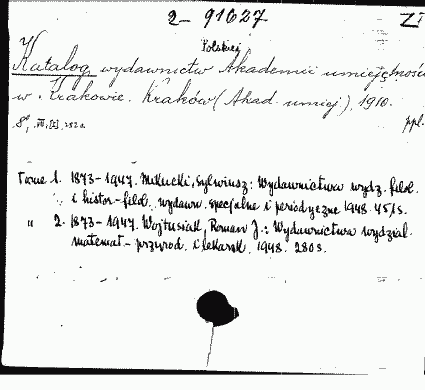 2- 91627
Polskiej
Katalog wydawnictw Akademii umiejętności
w Krakowie. Kraków (Akad. umiej), 1910.
8°, ppl.
Tome 1. 1873-1947. Mikucki, Sylwiusz: Wydawnictwa wydz. filol.
i histor-filol., wydawn. specjalne i periodyczne 1948. 45 s.
" 2. 1873-1947. Wojtusiak, Roman J.: Wydawnictwa wydział.
matemat-przyrod. i lekarsk. 1948. 280 s.